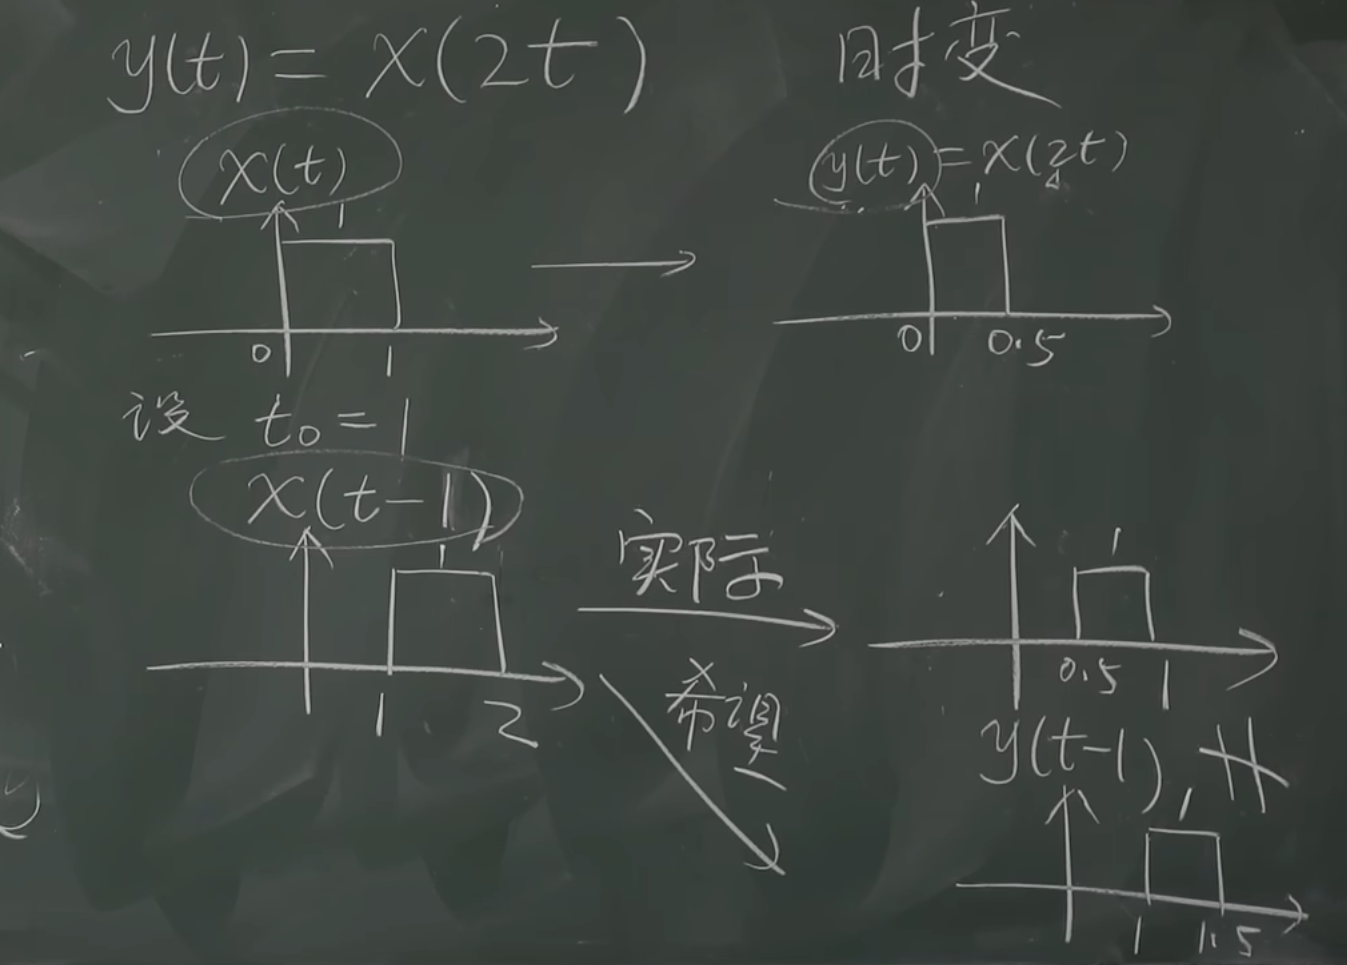 y(t) = x(2t) 时变
x(t)
1
0 1
y(t) = x(2t)
1
0 0.5
设 t₀ = 1
x(t-1)
1
1 2
实际
1
0.5 1
希望
y(t-1)
1
1 1.5